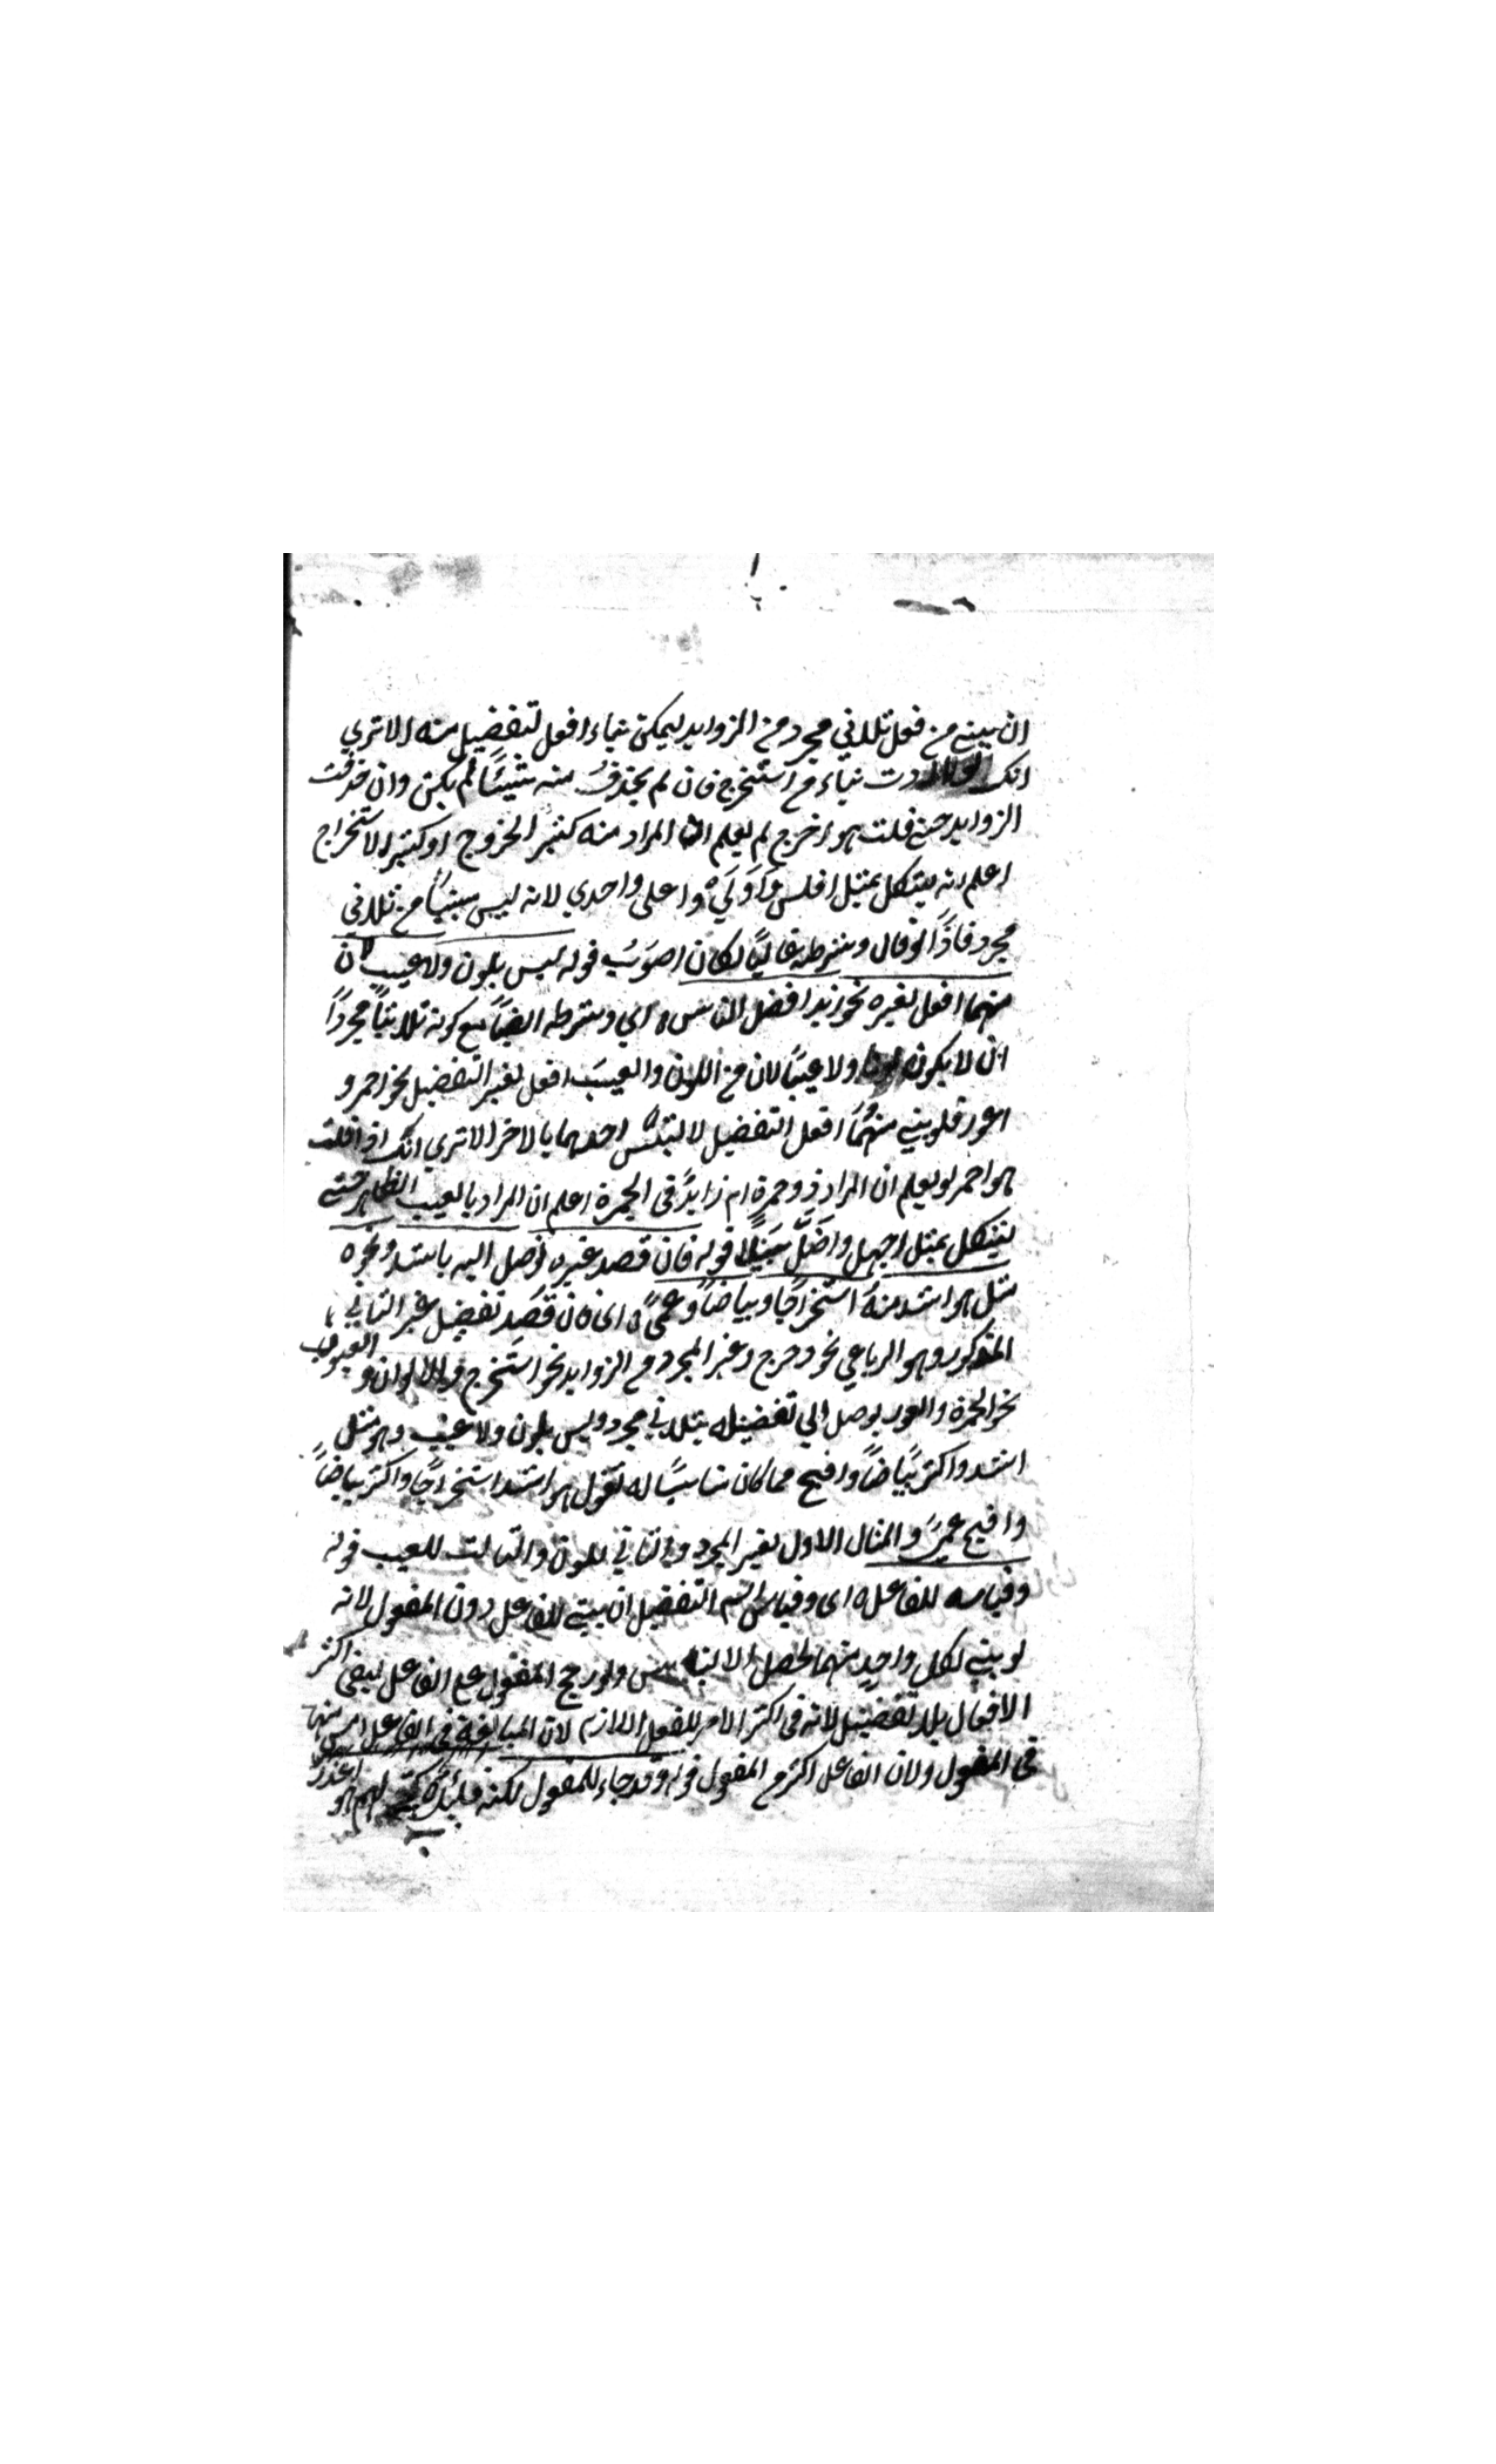 ان يبنى من فعل ثلاثي مجرد من الزوايد ليمكن بناء افعل لتفضيل منه الا تري
انك لو اردت بناء من استخرج فان لم يحذف منه شيئًا لم يكن وان حذفت
الزوايد حتى قلت هو اخرج لم يعلم ان المراد منه كثير الخروج او كثير الاستخراج
اعلم انه يشكل بمثل افلس واولي واعلى واحدي لانه ليس مبنيًا من ثلاثي
مجرد فاذًا لو قال وشرطه غالبًا لكان اصوب قوله ليس بلون ولا عيب لان
منهما افعل لغيره نحو زيد افضل الناس اي وشرطه ايضًا مع كونه ثلاثيًا مجردًا
ان لا يكون لونا ولا عيبًا لان من اللون والعيب افعل لغير التفضيل نحو احمر و
اعور فلو بني منهما افعل التفضيل لالتبس احدهما بالاخر الا تري انك اذا قلت
هو احمر لو يعلم ان المراد ذو حمرة ام زايد في الحمرة اعلم ان المراد بالعيب الظاهر حتى
يشكل بمثل اجهل واضل سبيلًا قوله فان قصد غيره توصل اليه باشد ونحوه
مثل هو اشد منه استخراجًا وبياضًا وعمىً اى فان قصد تفضيل غير الثاني
المذكور وهو الرباعي نحو دحرج وغير المجرد من الزوايد نحو استخرج والالوان و العيوب
نحو الحمرة والعور يوصل الي تفضيله بثلاثي مجرد وليس بلون ولا عيب وهو مثل
اشد واكثر بياضًا واقبح مما كان مناسبًا له تقول هو اشد استخراجًا واكثر بياضًا
واقبح عمىً والمثال الاول لغير المجرد والثاني للون والثالث للعيب قوله
وقياسه للفاعل اى وقياس اسم التفضيل ان يبنى للفاعل دون المفعول لانه
لو بني لكل واحد منهما لحصل الالتباس ولو رجح المفعول على الفاعل لبقى اكثر
الافعال بلا تفضيل لانه في اكثر الامر للفعل اللازم لان المبالغة في الفاعل امس منها
في المفعول ولان الفاعل اكثر من المفعول قوله وقد جاء للمفعول لكنه قليل نحو اعذر